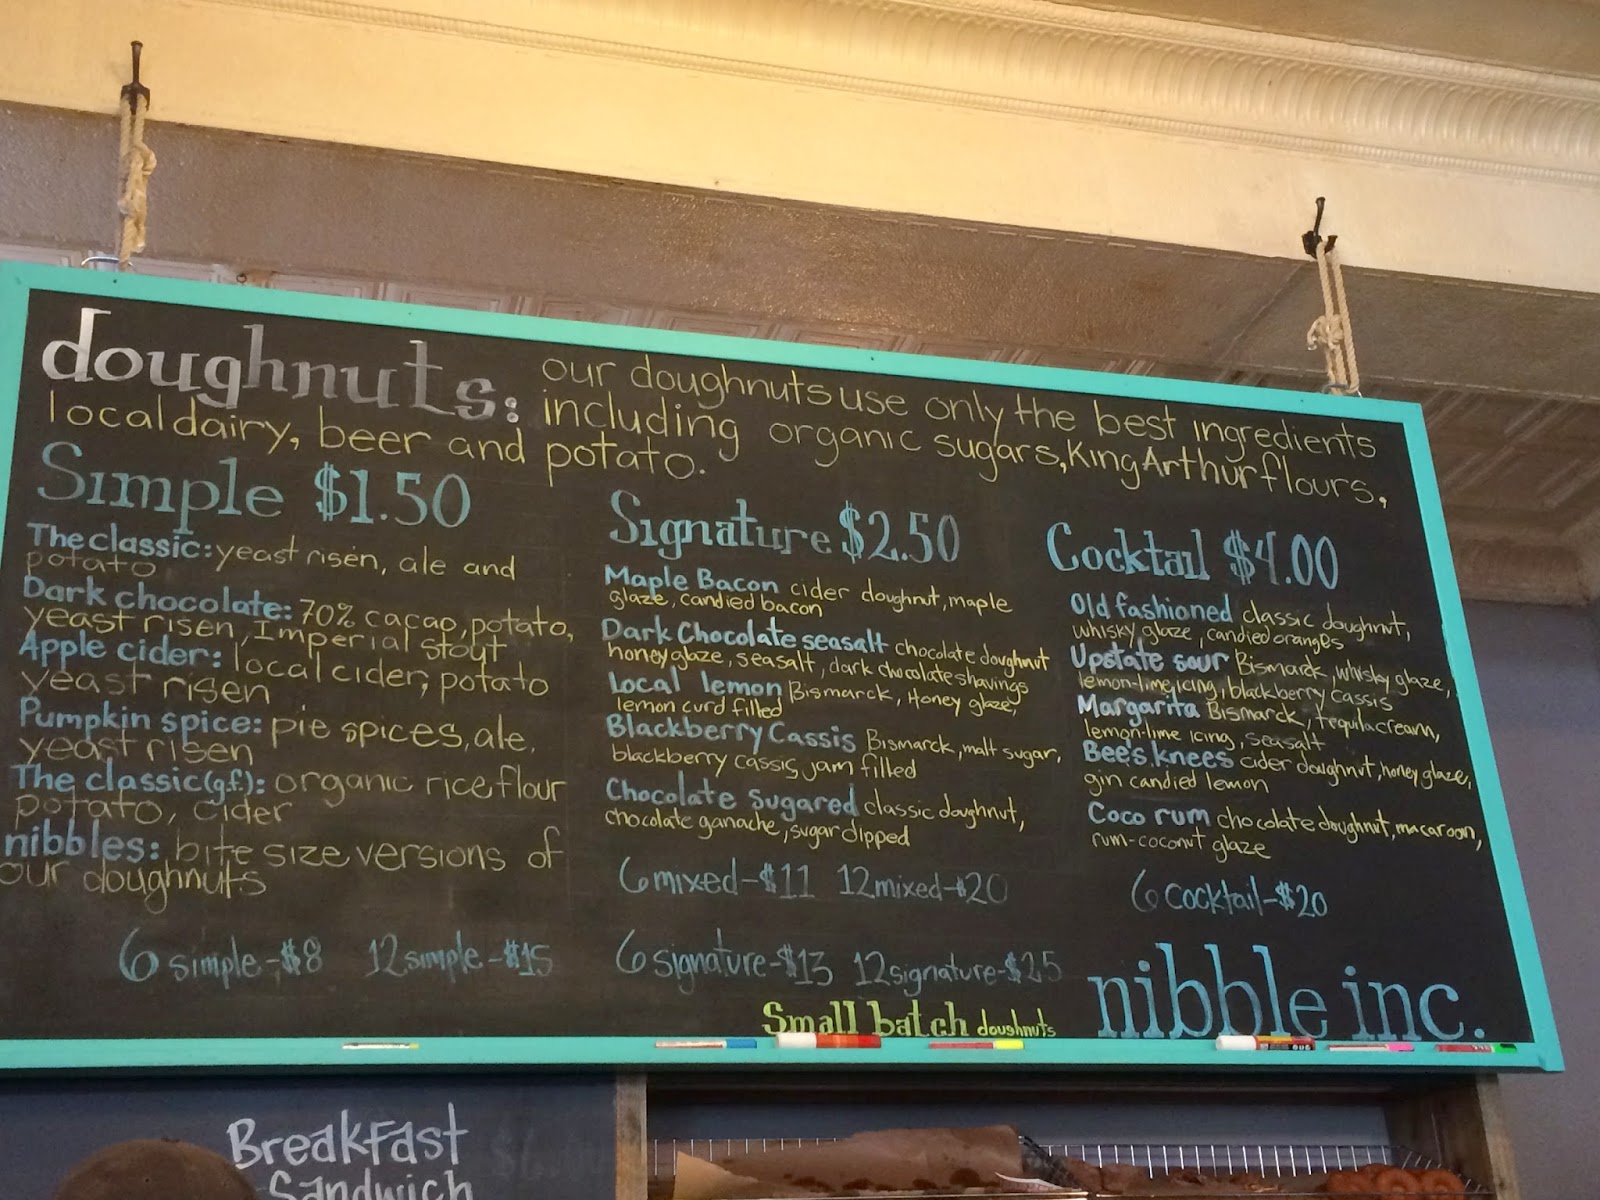 doughnuts: our doughnuts use only the best ingredients
including organic sugars, King Arthur flours,
local dairy, beer and potato.
Simple $1.50
The classic: yeast risen, ale and
potato
Dark chocolate: 70% cacao, potato,
yeast risen, Imperial stout
Apple cider: local cider, potato
yeast risen
Pumpkin spice: pie spices, ale,
yeast risen
The classic (g.f.): organic rice flour
potato, cider
nibbles: bite size versions of
our doughnuts
6 simple-$8 12 simple-$15
Signature $2.50
Maple Bacon cider doughnut, maple
glaze, candied bacon
Dark Chocolate seasalt chocolate doughnut
honey glaze, seasalt, dark chocolate shavings
Local lemon Bismarck, Honey glaze,
lemon curd filled
Blackberry Cassis Bismarck, malt sugar,
blackberry cassis jam filled
Chocolate Sugared classic doughnut,
chocolate ganache, sugar dipped
6 mixed-$11 12 mixed-$20
6 signature-$13 12 signature-$25
Small batch doughnuts
Cocktail $4.00
Old fashioned classic doughnut,
whisky glaze, candied oranges
Upstate sour Bismarck, whisky glaze,
lemon-lime icing, blackberry cassis
Margarita Bismarck, tequila cream,
lemon-lime icing, seasalt
Bee's knees cider doughnut, honey glaze,
gin candied lemon
Coco rum chocolate doughnut, macaroon,
rum-coconut glaze
6 Cocktail-$20
nibble inc.
Breakfast
Sandwich